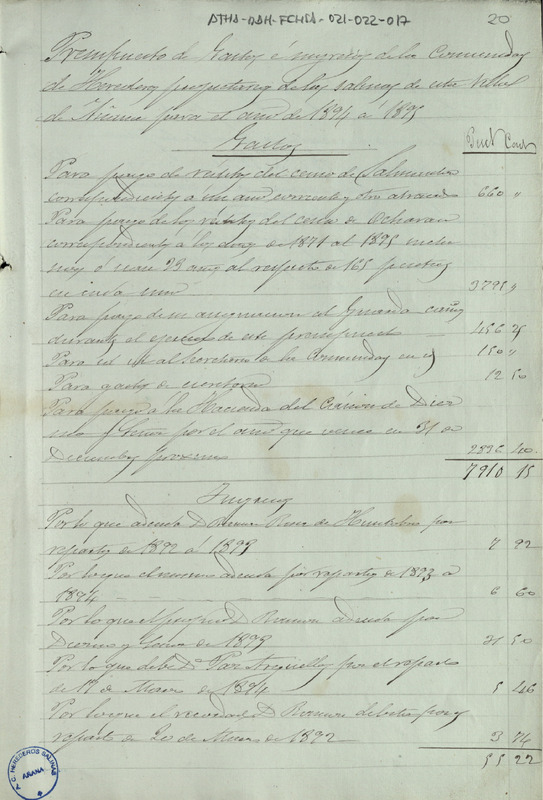 ATHA-DAH-FCHSA-021-022-017
20
Presupuesto de Gastos é ingresos de la Comunidad
de Herederos propietarios de las salinas de esta Villa
de Añana para el año de 1894 á 1895
Gastos
Pset Cent
Para pago de réditos del censo de Salmantón
correspondientes á un año corriente y otro atrasado 660 "
Para pago de los réditos del censo de Ochavarri
correspondientes á los de 1871 al 1895
ó sean 23 años al respecto de 165 pesetas
en cada uno 3795 "
Para pago de su asignacion al Guarda
durante el ejercicio de este presupuesto 456 25
Para id. id. al Secretario de la Comunidad en id 150 "
Para gastos de escritorio 12 50
Para pago á la Hacienda del Cánon de Diez
mo y por el año que vence en 31 de
Diciembre proximo 2836 40
7910 15
Ingresos
Por lo que adeuda D Ramon de por
reparto de 1892 á 1893 7 92
Por lo que el mismo adeuda por reparto de 1893 á
1894 6 60
Por lo que el propio D Ramon adeuda por
Diezmo y de 1893 31 50
Por lo que debe Dª Paz Arguelles por el reparto
de 17 de Marzo de 1894 5 46
Por lo que el D Ramon
reparto de 20 de Marzo de 1892 3 74
55 22
C. HEREDEROS SALINAS
AÑANA